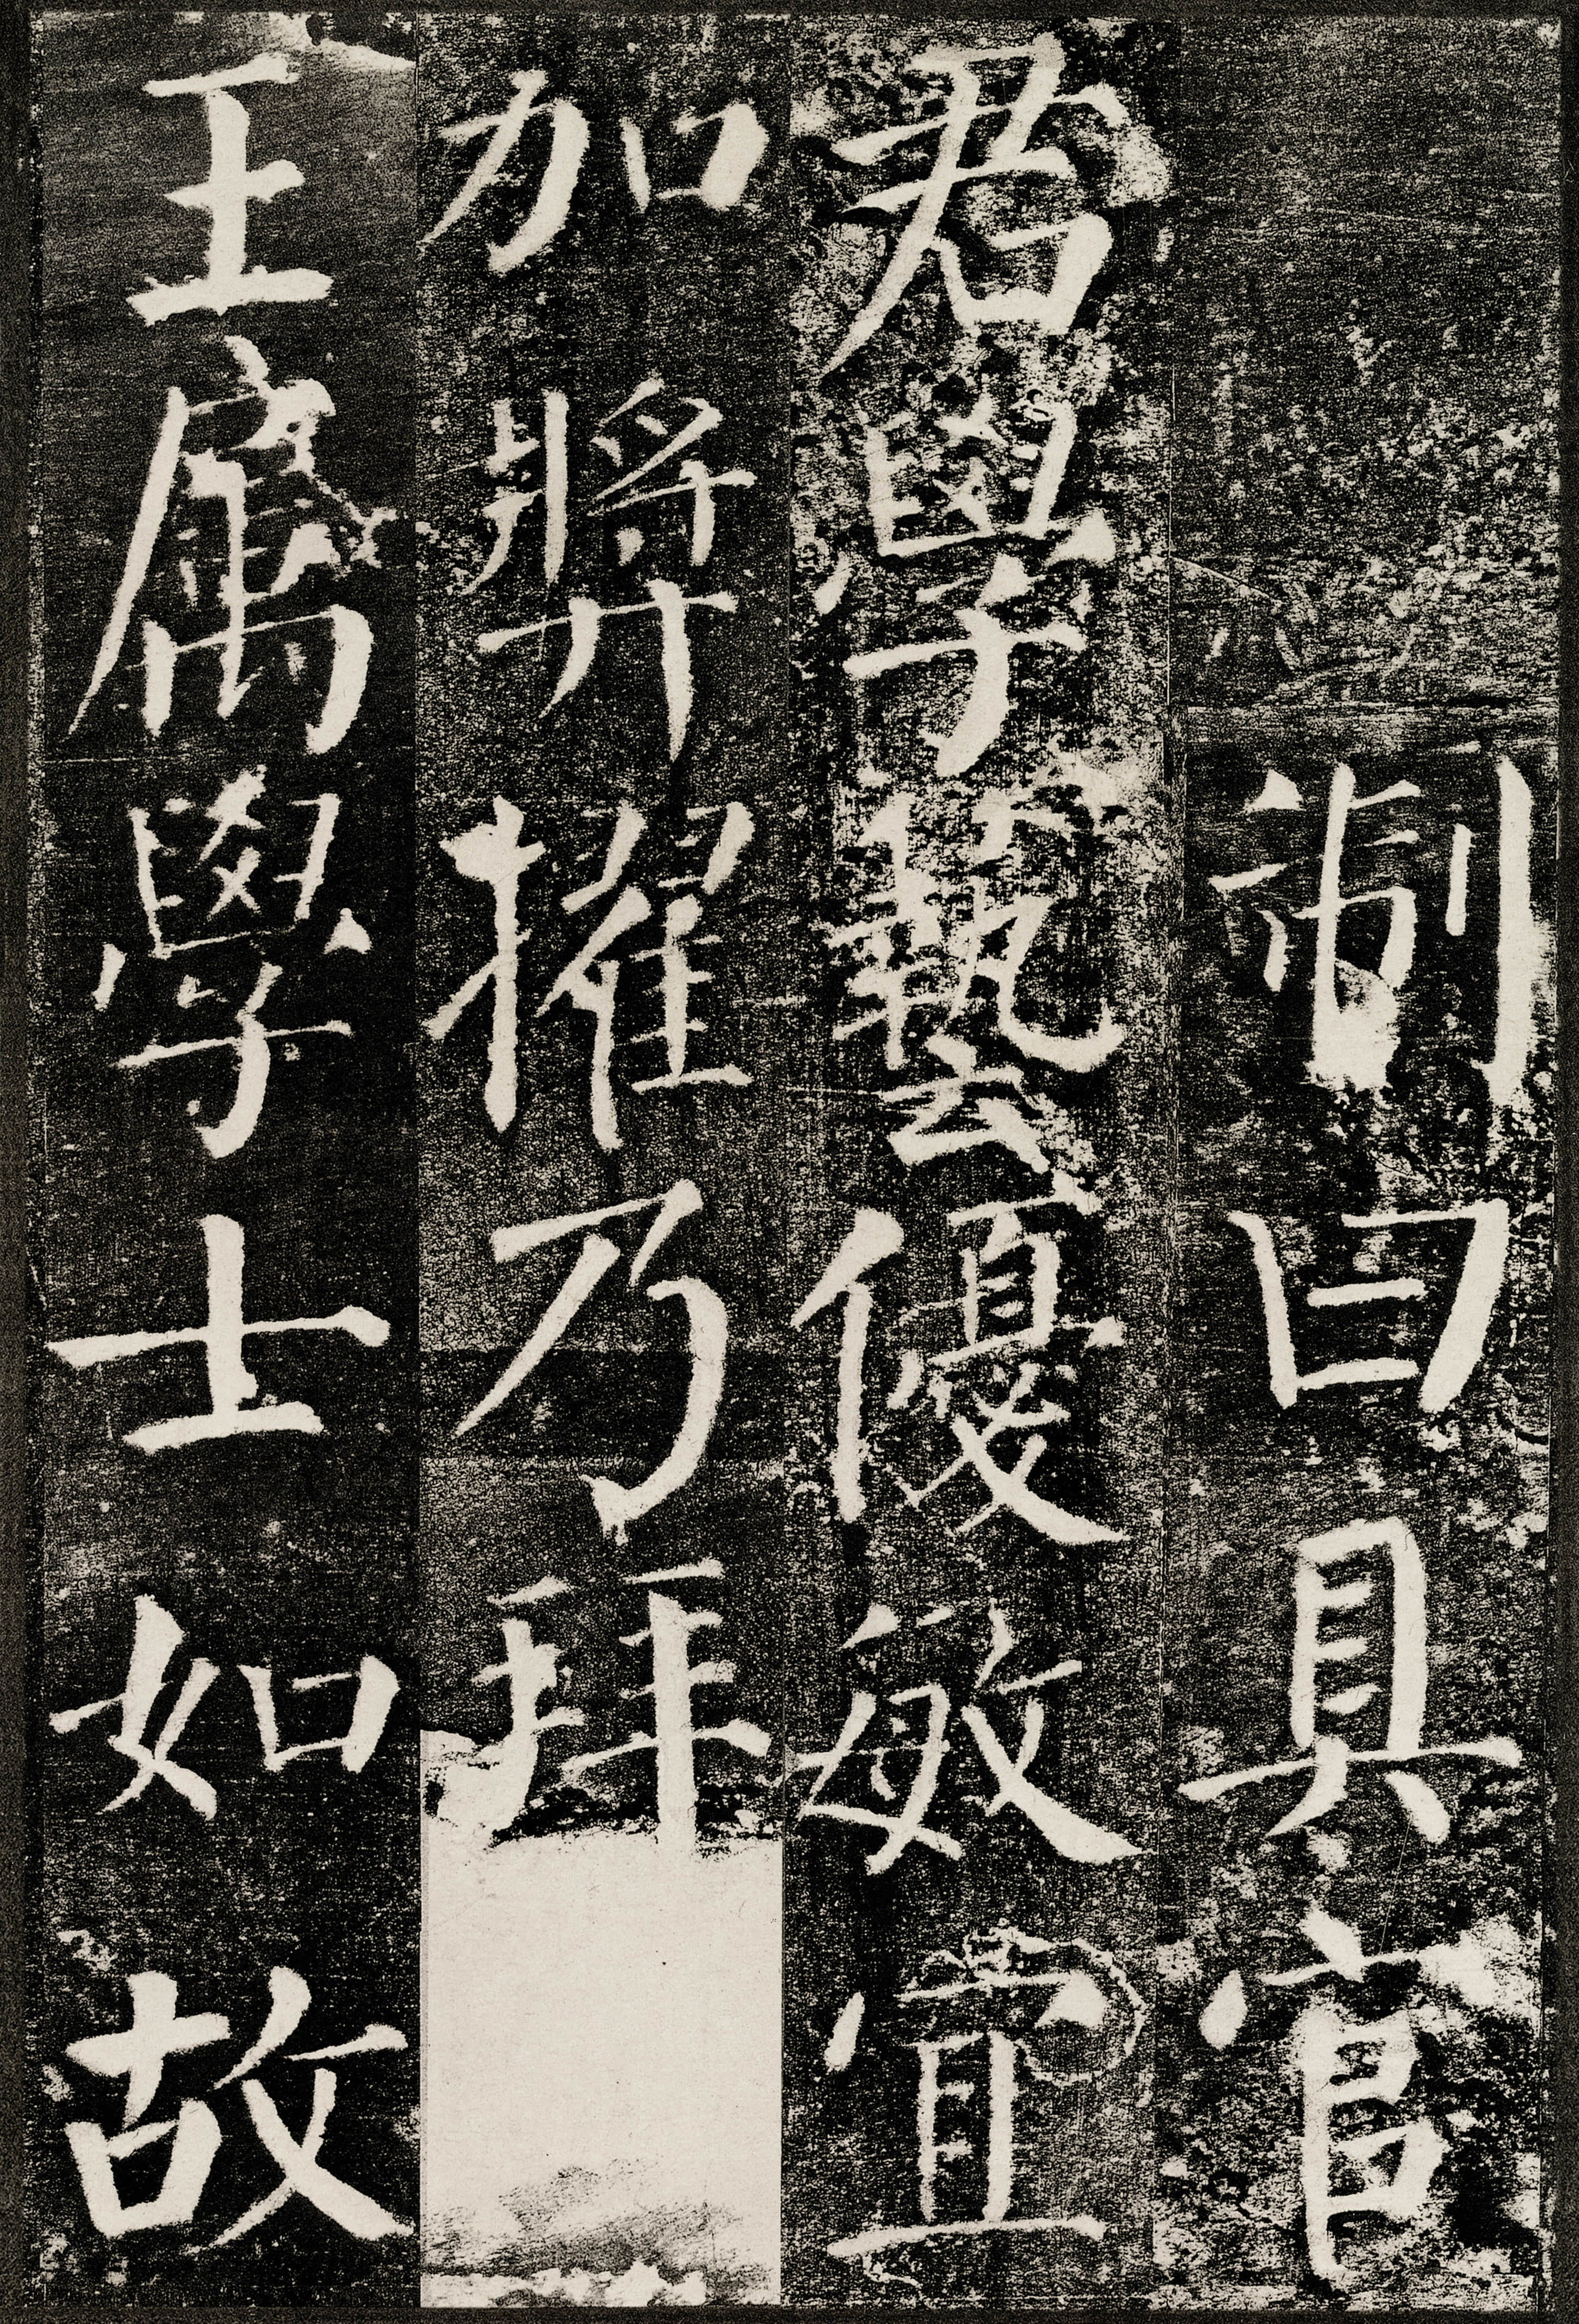 制曰具官
君學藝優敏宜
加奬擢乃拜
王屬學士如故